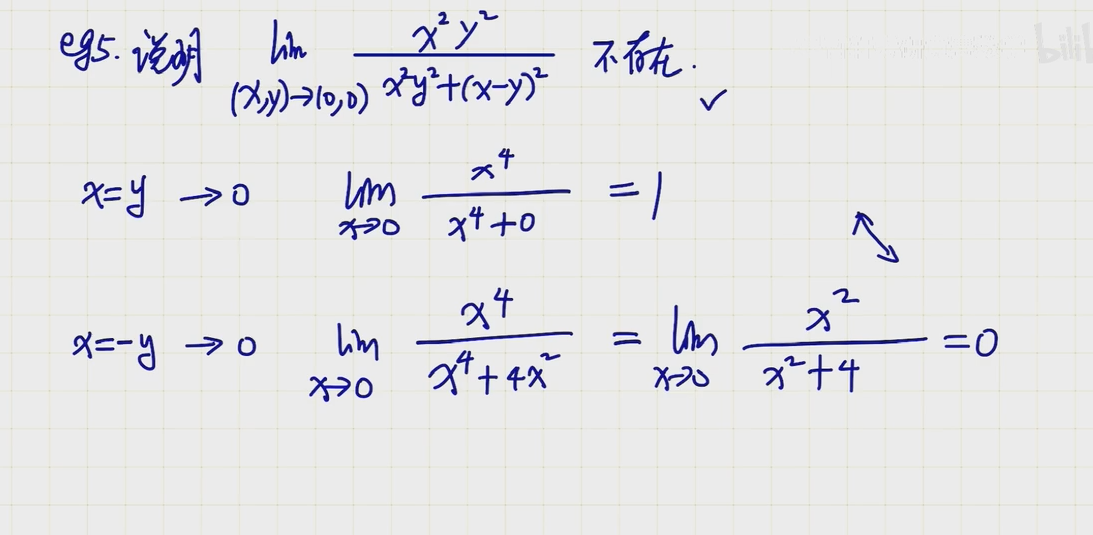 eg5. 说明 lim (x,y)→(0,0) x²y² / (x²y²+(x-y)²) 不存在. ✓
x=y →0 lim x→0 x⁴ / (x⁴+0) =1
x=-y →0 lim x→0 x⁴ / (x⁴+4x²) = lim x→0 x² / (x²+4) =0
bili